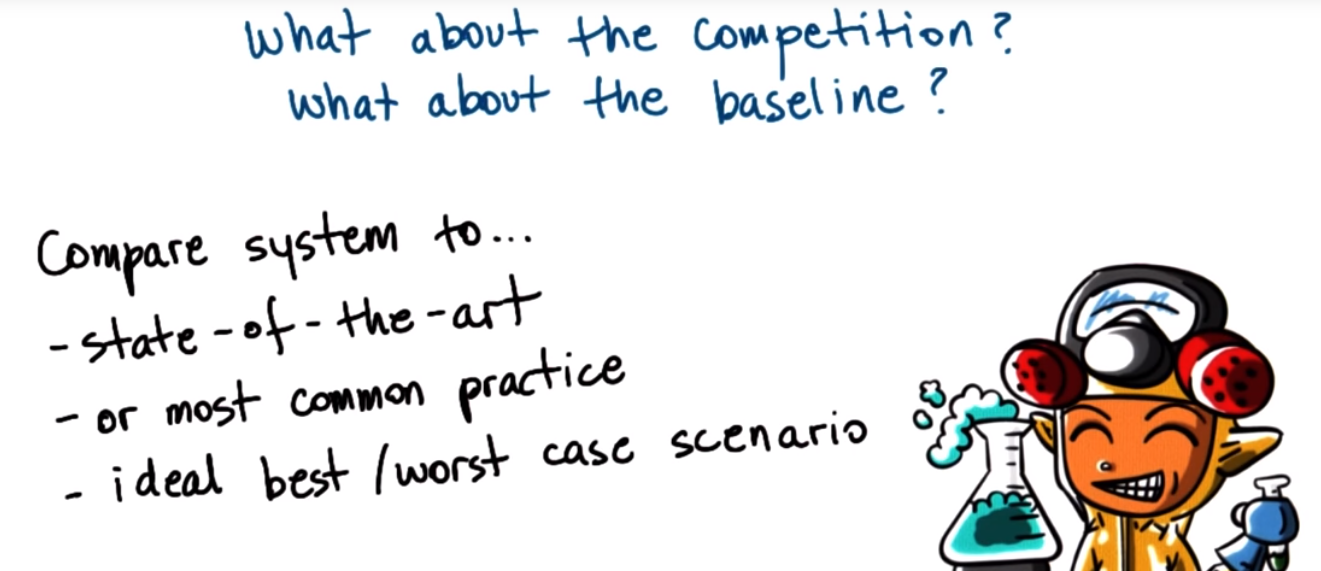 What about the competition?
What about the baseline?
Compare system to...
- state-of-the-art
- or most common practice
- ideal best/worst case scenario